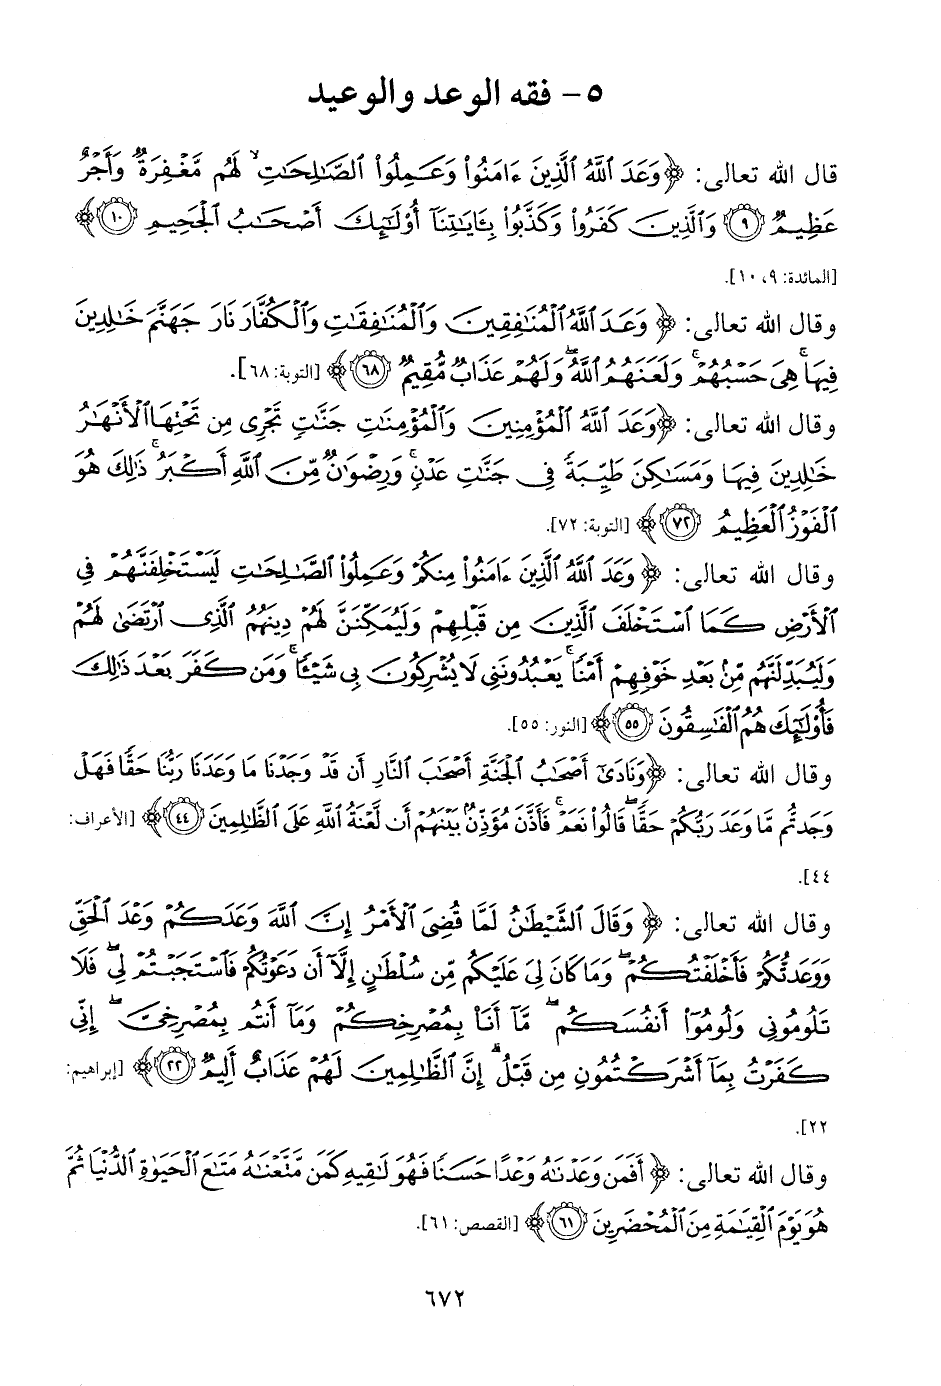 ٥- فقه الوعد والوعيد
قال الله تعالى: ﴿وَعَدَ ٱللَّهُ ٱلَّذِينَ ءَامَنُوا۟ وَعَمِلُوا۟ ٱلصَّـٰلِحَـٰتِ ۙ لَهُم مَّغْفِرَةٌ وَأَجْرٌ
عَظِيمٌ ﴿٩﴾ وَٱلَّذِينَ كَفَرُوا۟ وَكَذَّبُوا۟ بِـَٔايَـٰتِنَآ أُو۟لَـٰٓئِكَ أَصْحَـٰبُ ٱلْجَحِيمِ ﴿١٠﴾﴾
[المائدة: ٩، ١٠].
وقال الله تعالى: ﴿وَعَدَ ٱللَّهُ ٱلْمُنَـٰفِقِينَ وَٱلْمُنَـٰفِقَـٰتِ وَٱلْكُفَّارَ نَارَ جَهَنَّمَ خَـٰلِدِينَ
فِيهَا ۚ هِىَ حَسْبُهُمْ ۚ وَلَعَنَهُمُ ٱللَّهُ ۖ وَلَهُمْ عَذَابٌ مُّقِيمٌ ﴿٦٨﴾﴾ [التوبة: ٦٨].
وقال الله تعالى: ﴿وَعَدَ ٱللَّهُ ٱلْمُؤْمِنِينَ وَٱلْمُؤْمِنَـٰتِ جَنَّـٰتٍ تَجْرِى مِن تَحْتِهَا ٱلْأَنْهَـٰرُ
خَـٰلِدِينَ فِيهَا وَمَسَـٰكِنَ طَيِّبَةً فِى جَنَّـٰتِ عَدْنٍ ۚ وَرِضْوَٰنٌ مِّنَ ٱللَّهِ أَكْبَرُ ۚ ذَٰلِكَ هُوَ
ٱلْفَوْزُ ٱلْعَظِيمُ ﴿٧٢﴾﴾ [التوبة: ٧٢].
وقال الله تعالى: ﴿وَعَدَ ٱللَّهُ ٱلَّذِينَ ءَامَنُوا۟ مِنكُمْ وَعَمِلُوا۟ ٱلصَّـٰلِحَـٰتِ لَيَسْتَخْلِفَنَّهُمْ فِى
ٱلْأَرْضِ كَمَا ٱسْتَخْلَفَ ٱلَّذِينَ مِن قَبْلِهِمْ وَلَيُمَكِّنَنَّ لَهُمْ دِينَهُمُ ٱلَّذِى ٱرْتَضَىٰ لَهُمْ
وَلَيُبَدِّلَنَّهُم مِّنۢ بَعْدِ خَوْفِهِمْ أَمْنًا ۚ يَعْبُدُونَنِى لَا يُشْرِكُونَ بِى شَيْـًٔا ۚ وَمَن كَفَرَ بَعْدَ ذَٰلِكَ
فَأُو۟لَـٰٓئِكَ هُمُ ٱلْفَـٰسِقُونَ ﴿٥٥﴾﴾ [النور: ٥٥].
وقال الله تعالى: ﴿وَنَادَىٰٓ أَصْحَـٰبُ ٱلْجَنَّةِ أَصْحَـٰبَ ٱلنَّارِ أَن قَدْ وَجَدْنَا مَا وَعَدَنَا رَبُّنَا حَقًّا فَهَلْ
وَجَدتُّم مَّا وَعَدَ رَبُّكُمْ حَقًّا ۖ قَالُوا۟ نَعَمْ ۚ فَأَذَّنَ مُؤَذِّنٌۢ بَيْنَهُمْ أَن لَّعْنَةُ ٱللَّهِ عَلَى ٱلظَّـٰلِمِينَ ﴿٤٤﴾﴾ [الأعراف:
٤٤].
وقال الله تعالى: ﴿وَقَالَ ٱلشَّيْطَـٰنُ لَمَّا قُضِىَ ٱلْأَمْرُ إِنَّ ٱللَّهَ وَعَدَكُمْ وَعْدَ ٱلْحَقِّ
وَوَعَدتُّكُمْ فَأَخْلَفْتُكُمْ ۖ وَمَا كَانَ لِىَ عَلَيْكُم مِّن سُلْطَـٰنٍ إِلَّآ أَن دَعَوْتُكُمْ فَٱسْتَجَبْتُمْ لِى ۖ فَلَا
تَلُومُونِى وَلُومُوٓا۟ أَنفُسَكُم ۖ مَّآ أَنَا۠ بِمُصْرِخِكُمْ وَمَآ أَنتُم بِمُصْرِخِىَّ ۖ إِنِّى
كَفَرْتُ بِمَآ أَشْرَكْتُمُونِ مِن قَبْلُ ۗ إِنَّ ٱلظَّـٰلِمِينَ لَهُمْ عَذَابٌ أَلِيمٌ ﴿٢٢﴾﴾ [إبراهيم:
٢٢].
وقال الله تعالى: ﴿أَفَمَن وَعَدْنَـٰهُ وَعْدًا حَسَنًا فَهُوَ لَـٰقِيهِ كَمَن مَّتَّعْنَـٰهُ مَتَـٰعَ ٱلْحَيَوٰةِ ٱلدُّنْيَا ثُمَّ
هُوَ يَوْمَ ٱلْقِيَـٰمَةِ مِنَ ٱلْمُحْضَرِينَ ﴿٦١﴾﴾ [القصص: ٦١].
٦٧٢